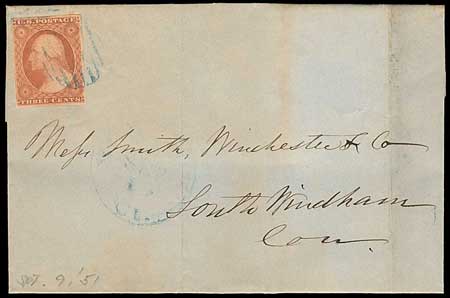 U.S. POSTAGE
THREE CENTS
Mess Smith, Winchester & Co
South Windham
Con.
9, '51